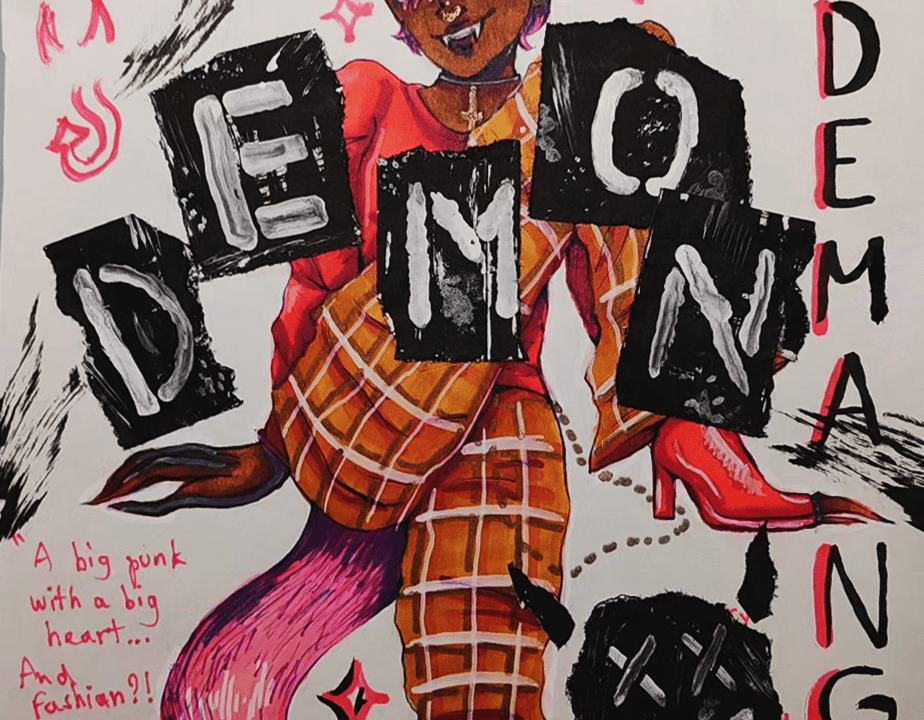 DEMON
DEMANG
"A big punk
with a big
heart...
And
fashion?!